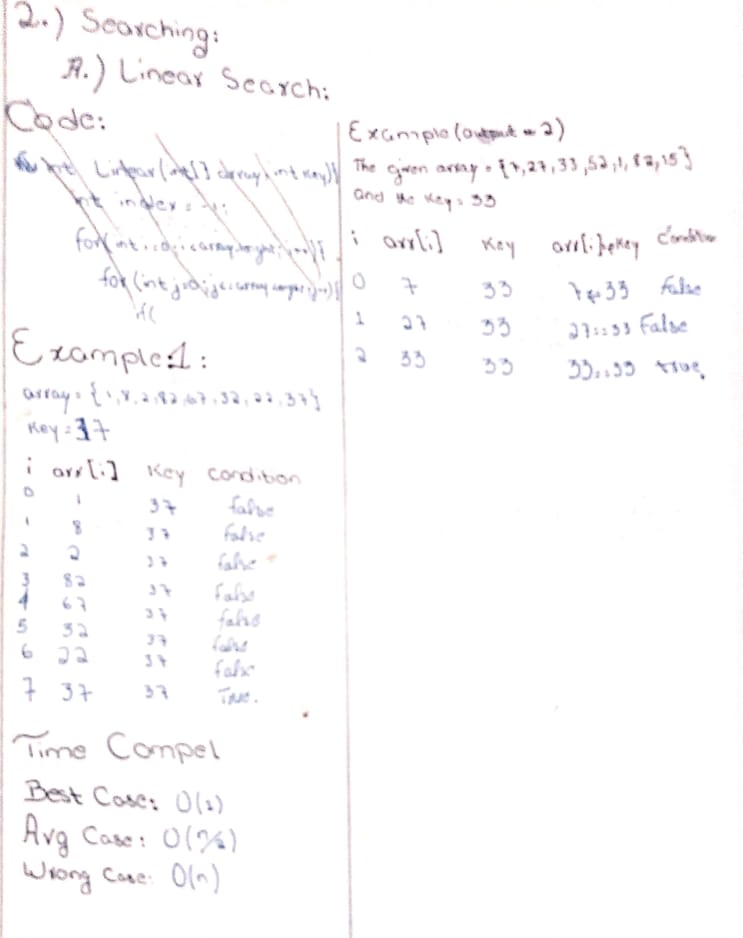 2.) Searching:
A.) Linear Search:
Code:
int Linear(int[] array, int key){
int index = -1;
for(int i=0; i<array.length; i++){
for (int j=0; j<array.length; j++){
if(
Example:1:
array = {1,8,2,82,67,32,22,37}
Key = 37
i arr[i] Key condition
0 1 37 false
1 8 37 false
2 2 37 false
3 82 37 False
4 67 37 false
5 32 37 false
6 22 37 false
7 37 37 True.
Time Compel
Best Case: O(1)
Avg Case: O(n/2)
Wrong Case: O(n)
Example (output = 2)
The given array = {7,27,33,52,1,82,15}
and the key = 33
i arr[i] Key arr[i]==Key Condition
0 7 33 7==33 False
1 27 33 27==33 False
2 33 33 33==33 true.